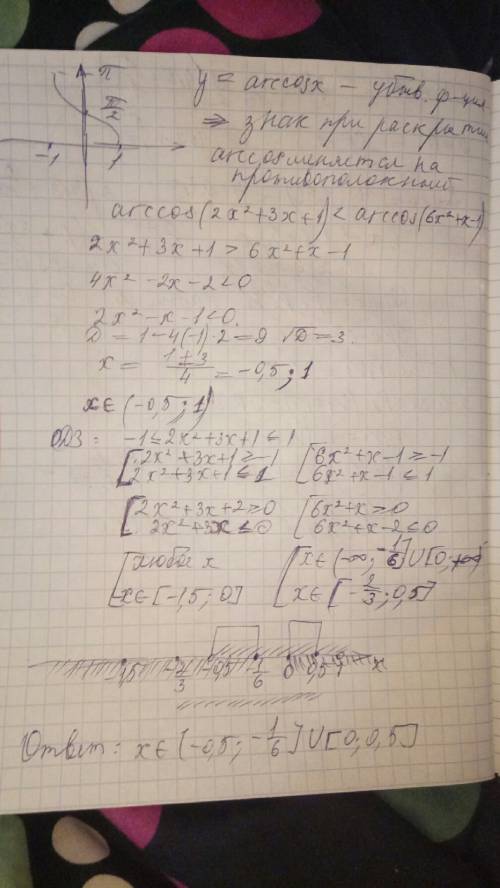 π
π/2
-1 1
y = arccosx - убыв. ф-ция
⇒ знак при раскрытии
arccos меняется на
противоположный
arccos(2x²+3x+1) < arccos(6x²+x-1)
2x²+3x+1 > 6x²+x-1
4x² -2x-2<0
2x²-x-1<0.
D = 1-4(-1)·2=9 √D=3.
x = (1±3)/4 = -0,5; 1
x∈(-0,5; 1)
ОДЗ: -1≤2x²+3x+1≤1
[2x²+3x+1≥-1 [6x²+x-1≥-1
2x²+3x+1≤1 6x²+x-1≤1
[2x²+3x+2≥0 [6x²+x≥0
2x²+3x≤0 6x²+x-2≤0
[любое x [x∈(-∞; -1/6]∪[0;+∞)
x∈[-1,5; 0] x∈[-2/3; 0,5]
-1,5 -2/3 -0,5 -1/6 0 0,5 1 x
Ответ: x∈[-0,5; -1/6]∪[0; 0,5]